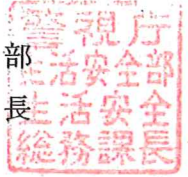 部長
警視庁
生活安全部
生活安全
総務課長